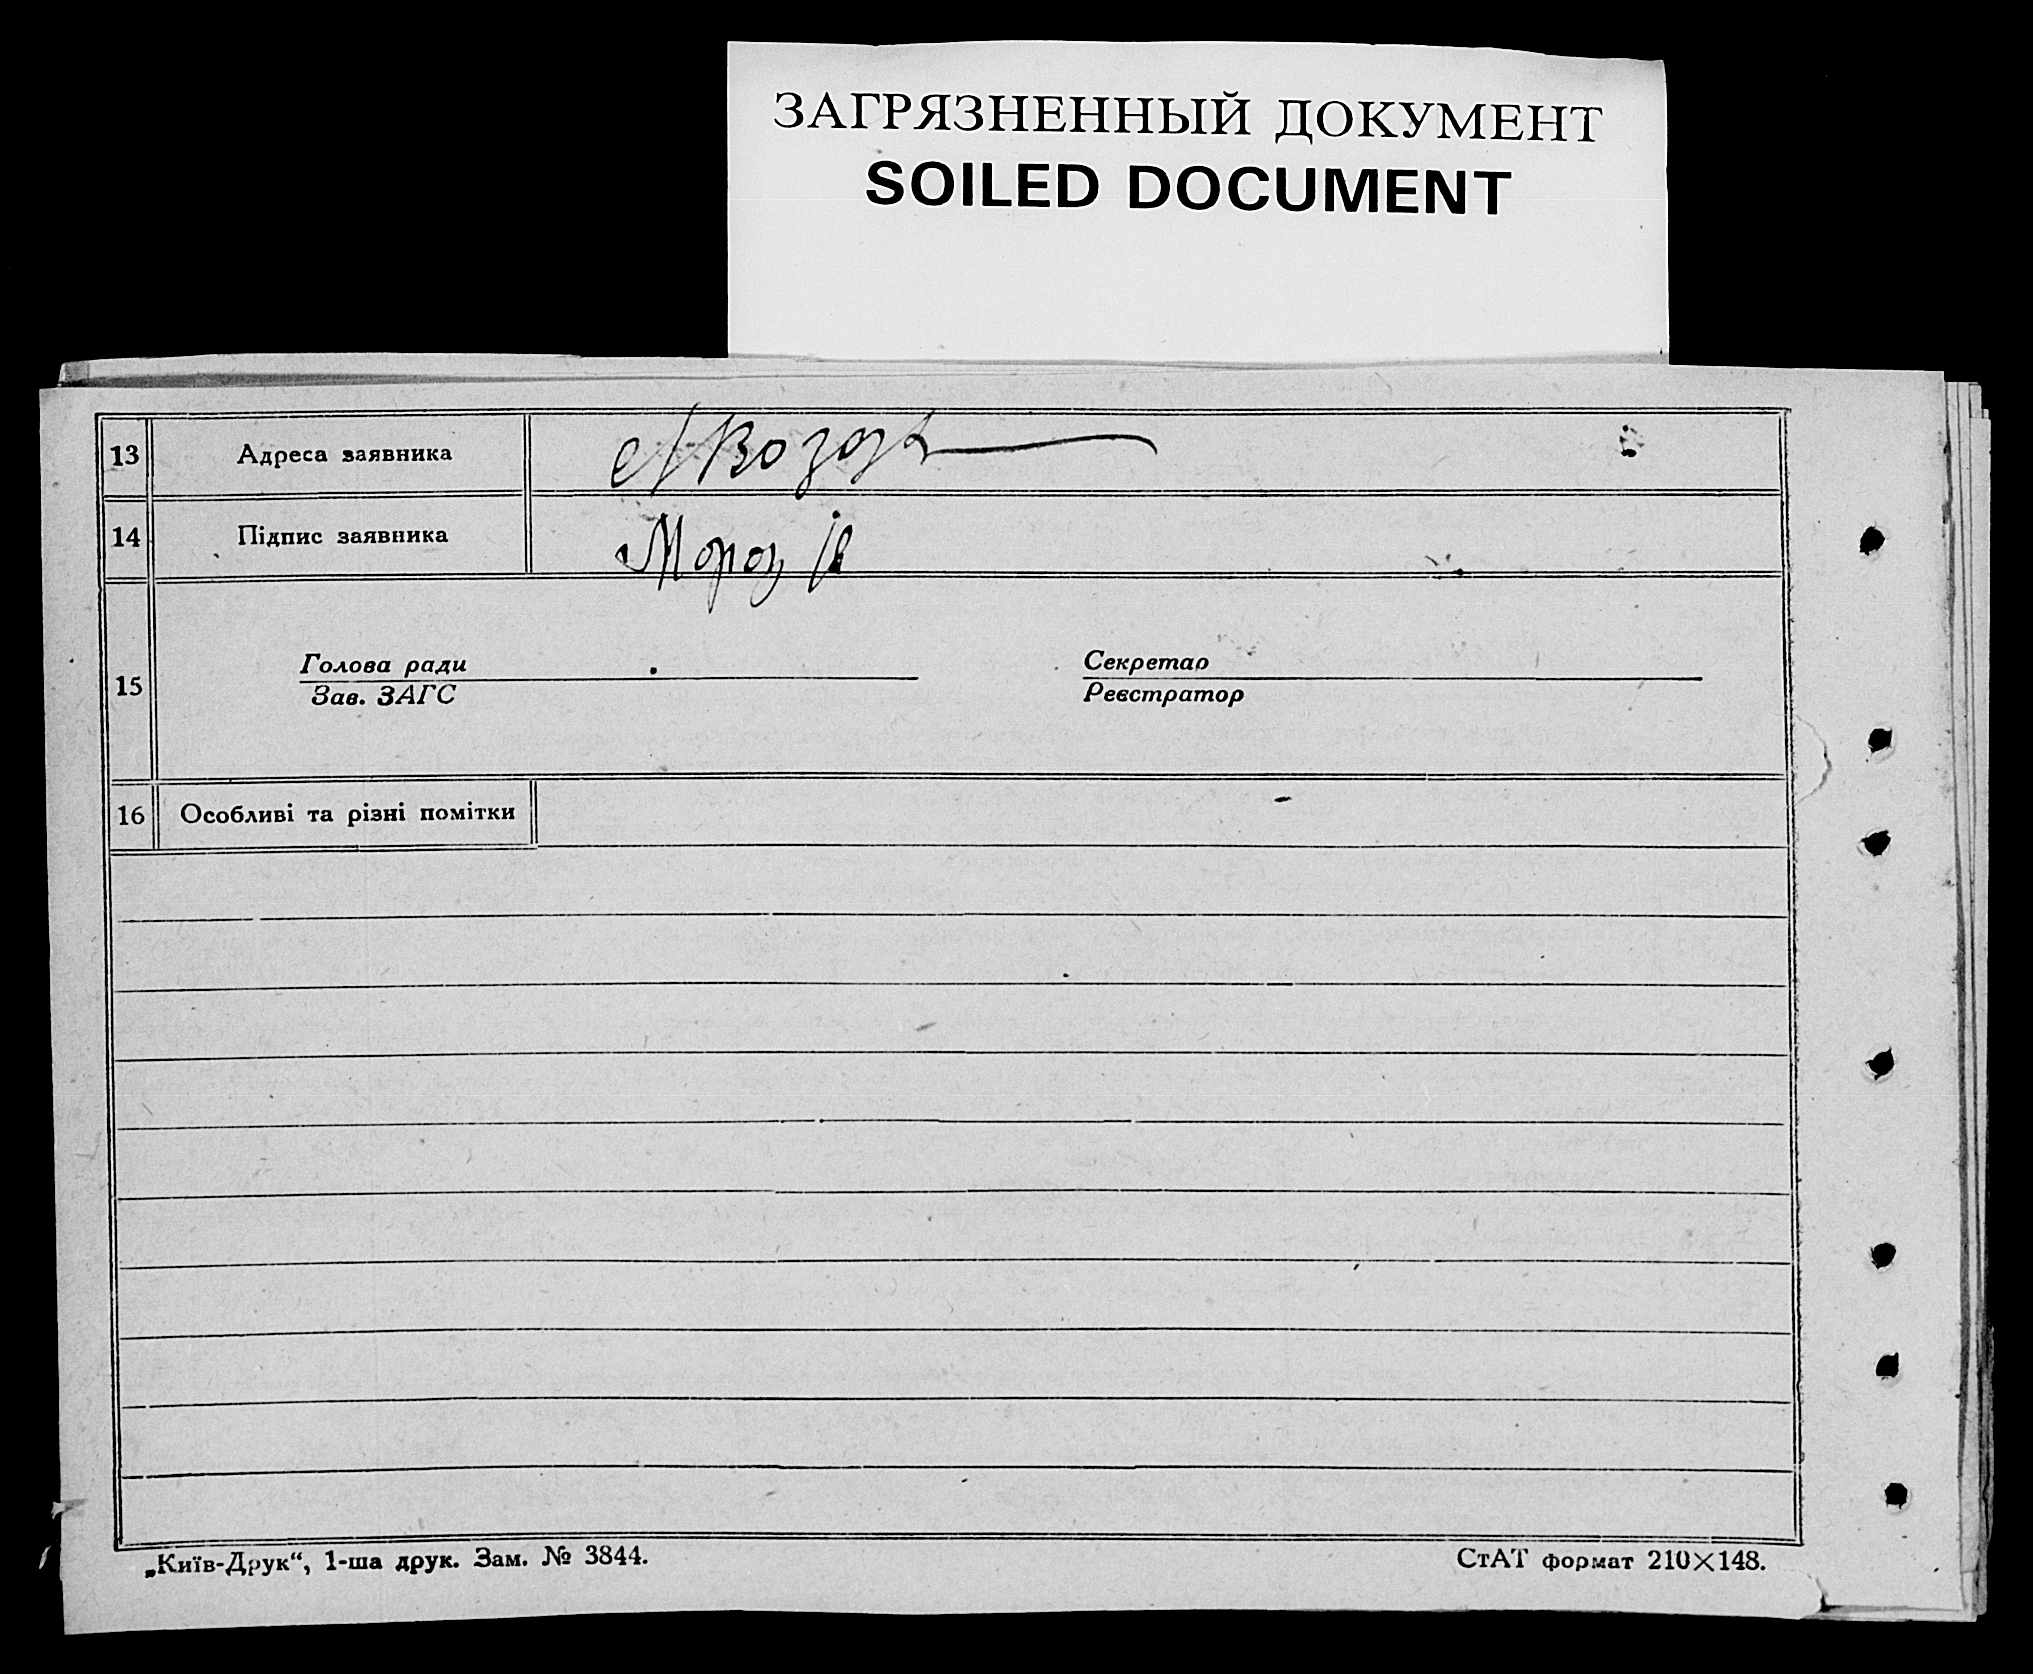 ЗАГРЯЗНЕННЫЙ ДОКУМЕНТ
SOILED DOCUMENT
13 Адреса заявника
14 Підпис заявника Мороз
15
Голова ради
Зав. ЗАГС
Секретар
Реєстратор
16 Особливі та різні помітки
„Київ-Друк“, 1-ша друк. Зам. № 3844.
СтАТ формат 210×148.